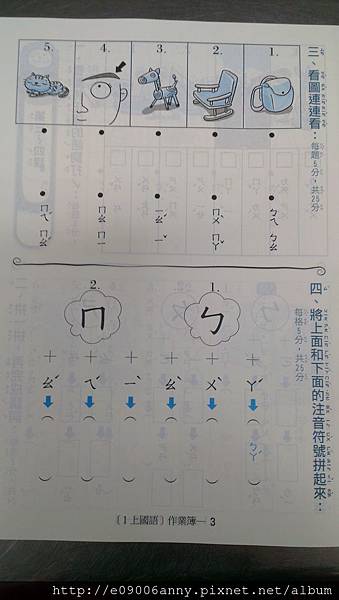 三、看圖連連看：每題5分，共25分
1.
2.
3.
4.
5.
ㄅㄟ ㄅㄠ
ㄇㄨˋ ㄇㄚˇ
ㄧㄠˊ ㄧˇ
ㄇㄠ ㄇㄧ
ㄇㄟˊ ㄇㄠˊ
四、將上面和下面的注音符號拼起來：
每格5分，共25分
1.
ㄅ
＋ㄚˊ（ㄅㄚˊ）
＋ㄨˊ（ ）
＋ㄠˊ（ ）
2.
ㄇ
＋ㄧˊ（ ）
＋ㄟˊ（ ）
＋ㄠˊ（ ）
〔1上國語〕作業簿—3
http://e09006anny.pixnet.net/album